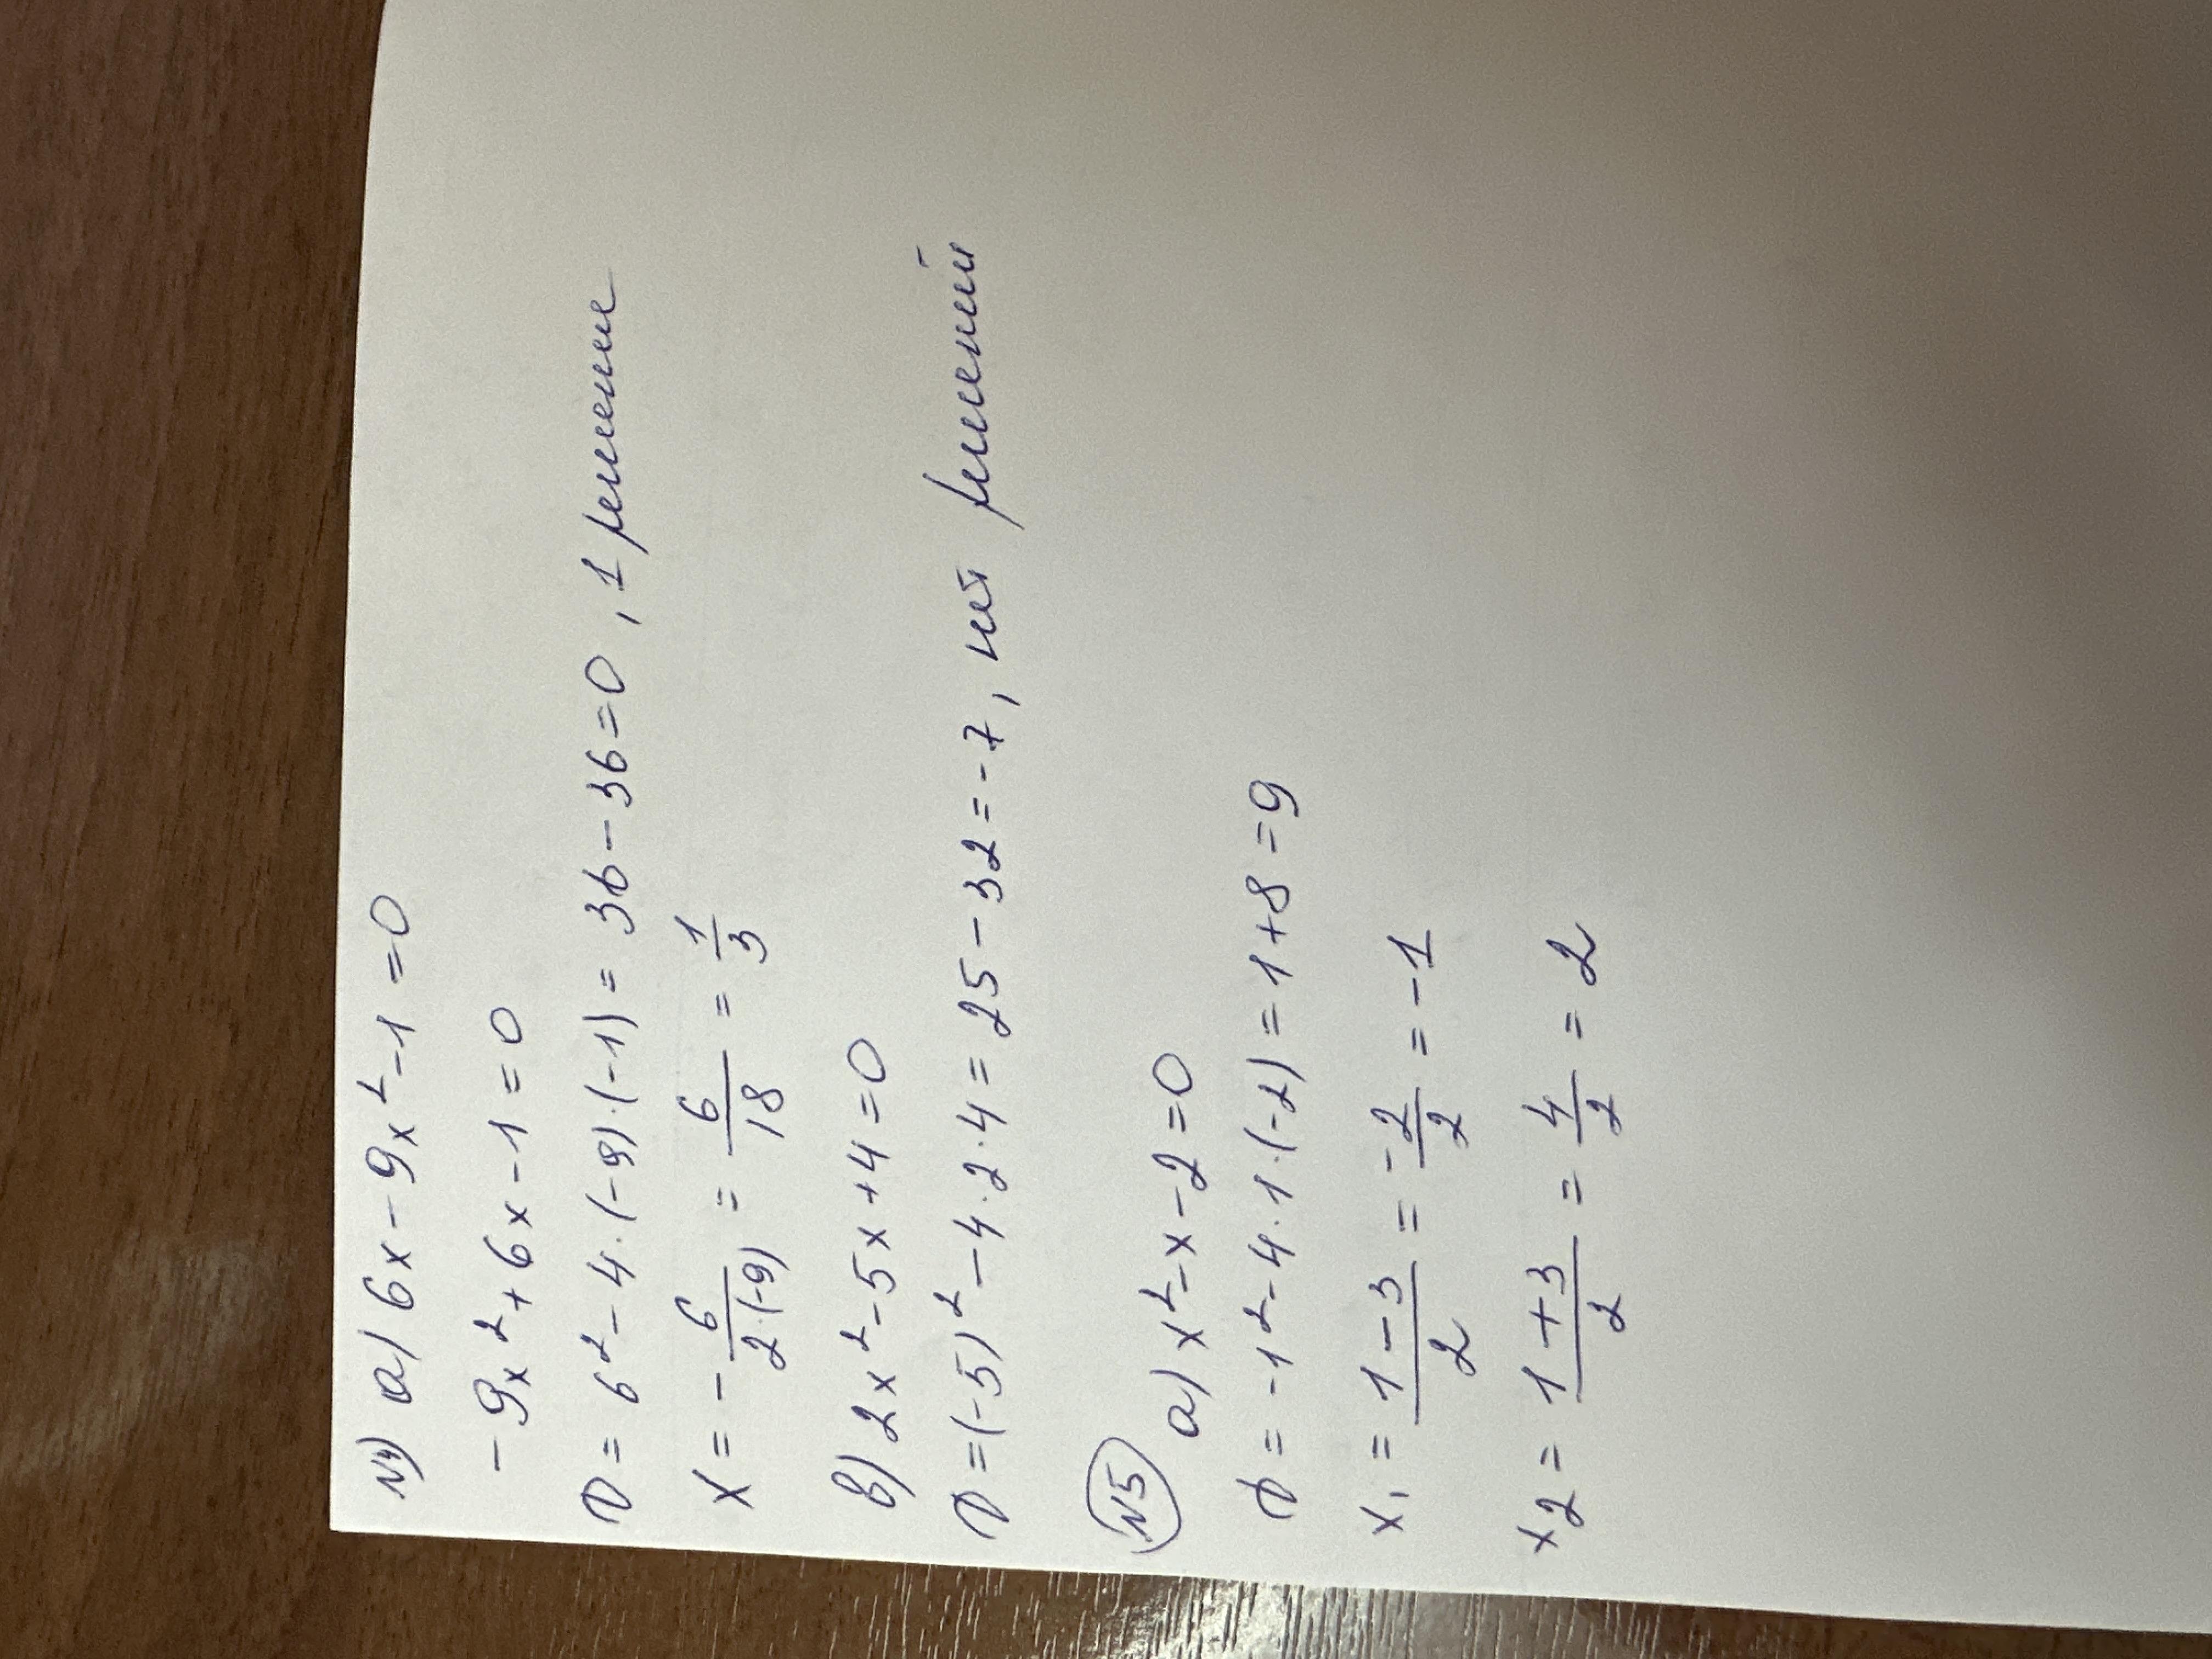 N4) а) 6x - 9x² - 1 = 0
- 9x² + 6x - 1 = 0
D = 6² - 4·(-9)·(-1) = 36 - 36 = 0, 1 решение
x = - 6/(2·(-9)) = 6/18 = 1/3
в) 2x² - 5x + 4 = 0
D = (-5)² - 4·2·4 = 25 - 32 = -7, нет решений
N5 а) x² - x - 2 = 0
D = -1² - 4·1·(-2) = 1 + 8 = 9
x₁ = (1 - 3)/2 = -2/2 = -1
x₂ = (1 + 3)/2 = 4/2 = 2